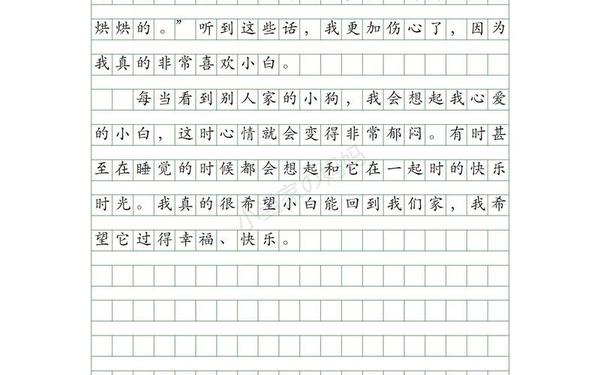 烘烘的。”听到这些话，我更加伤心了，因为
我真的非常喜欢小白。
每当看到别人家的小狗，我会想起我心爱
的小白，这时心情就会变得非常郁闷。有时甚
至在睡觉的时候都会想起和它在一起时的快乐
时光。我真的很希望小白能回到我们家，我希
望它过得幸福、快乐。